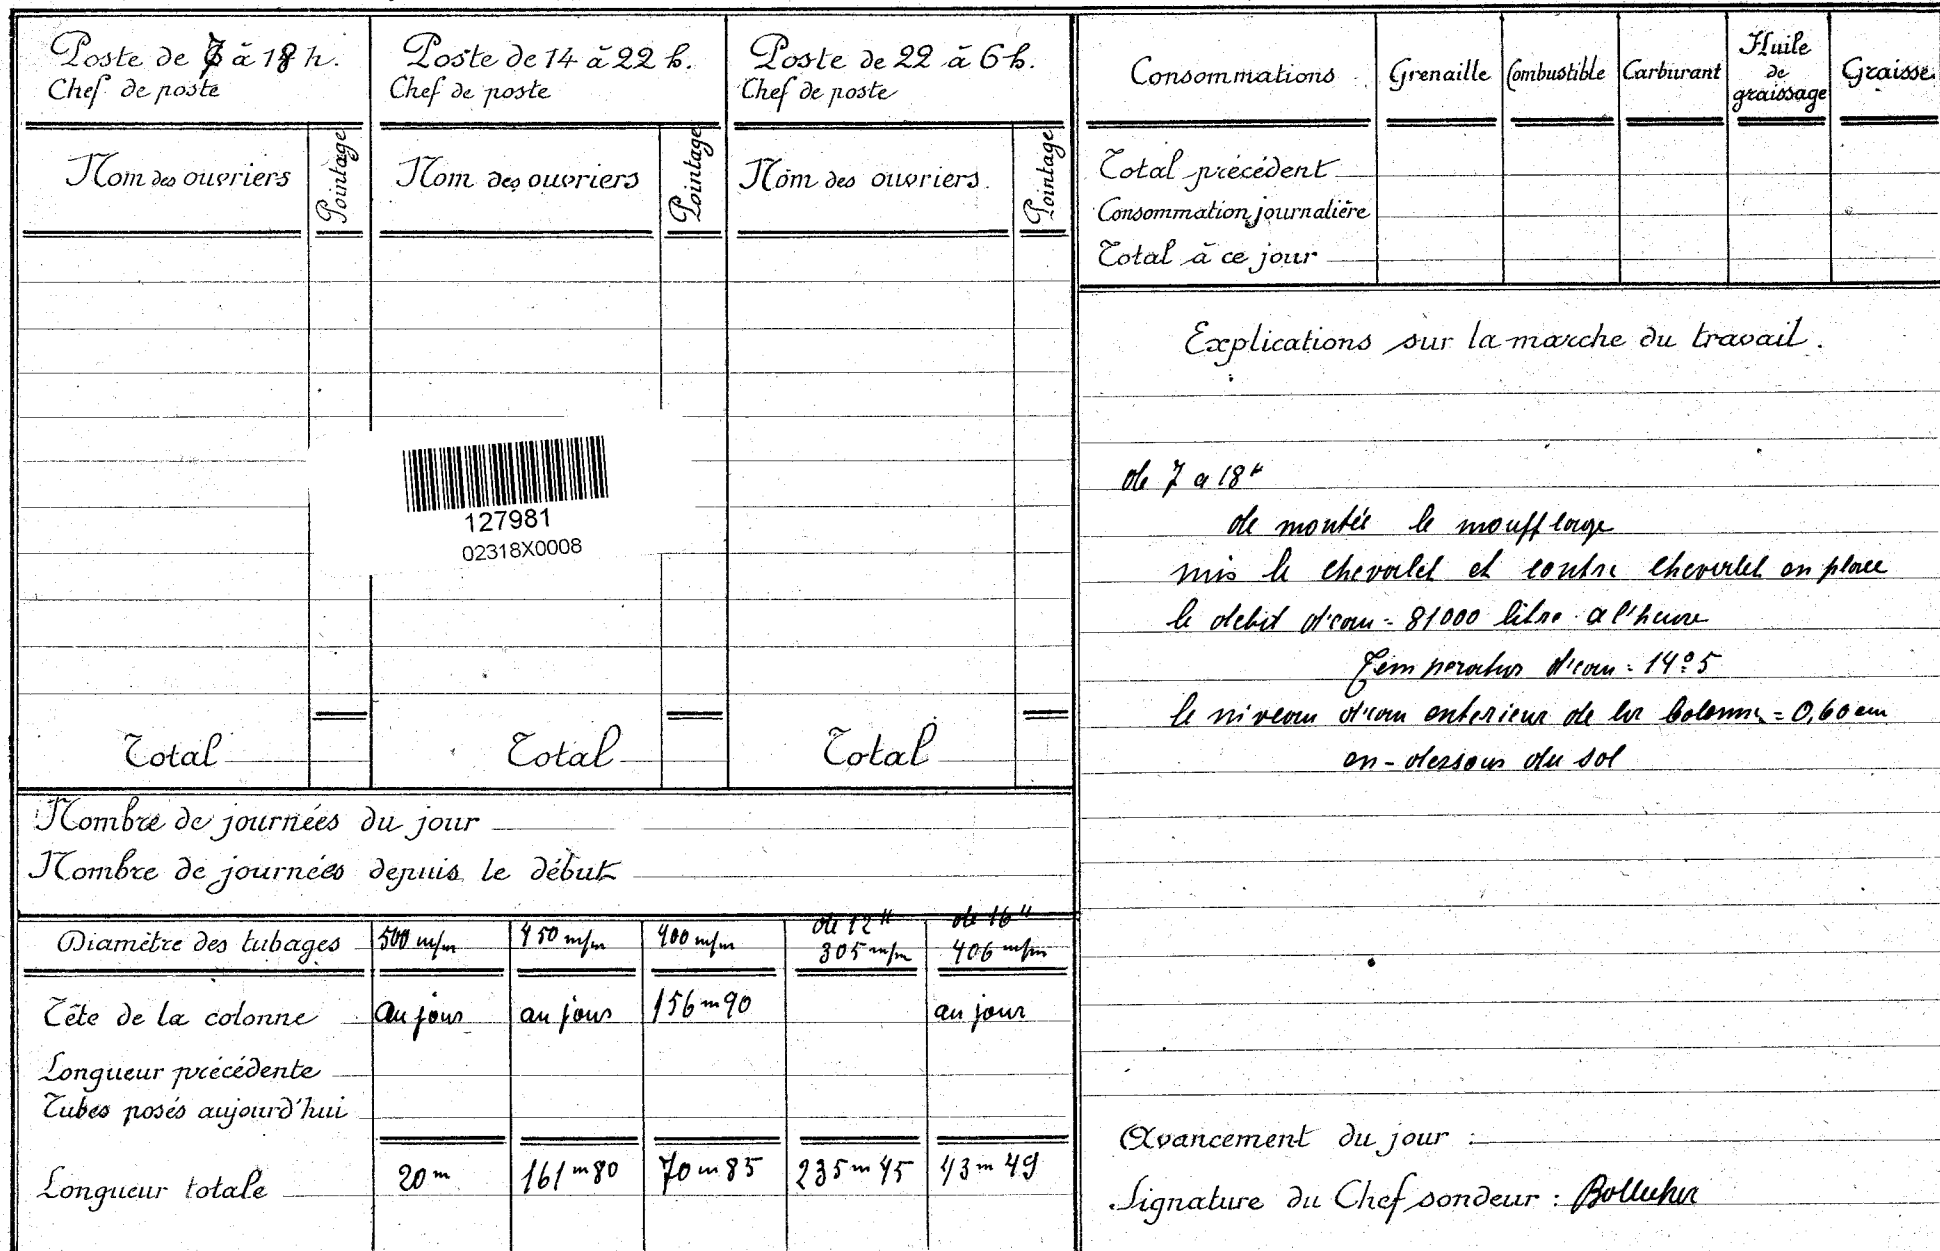 Poste de 7 à 18 h.
Chef de poste
Nom des ouvriers
Pointage
Total
Poste de 14 à 22 h.
Chef de poste
Nom des ouvriers
Pointage
Total
Poste de 22 à 6 h.
Chef de poste
Nom des ouvriers.
Pointage
Total
127981
02318X0008
Nombre de journées du jour
Nombre de journées depuis le début
de 12" de 16"
Diamètre des tubages 500 m/m 450 m/m 400 m/m 305 m/m 406 m/m
Tête de la colonne au jour au jour 156 m 90 au jour
Longueur précédente
Tubes posés aujourd'hui
Longueur totale 20 m 161 m 80 70 m 85 235 m 45 43 m 49
Consommations Grenaille Combustible Carburant Huile de graissage Graisse
Total précédent
Consommation journalière
Total à ce jour
Explications sur la marche du travail.
de 7 a 18 h
de montée le moufflage
mis le chevalet et contre chevalet en place
le debit d'eau = 81000 litre a l'heure
Temperatur d'eau = 14° 5
le niveau d'eau enterieur de la Colonne = 0,60 cm
en-dessous du sol
Avancement du jour :
Signature du Chef sondeur :